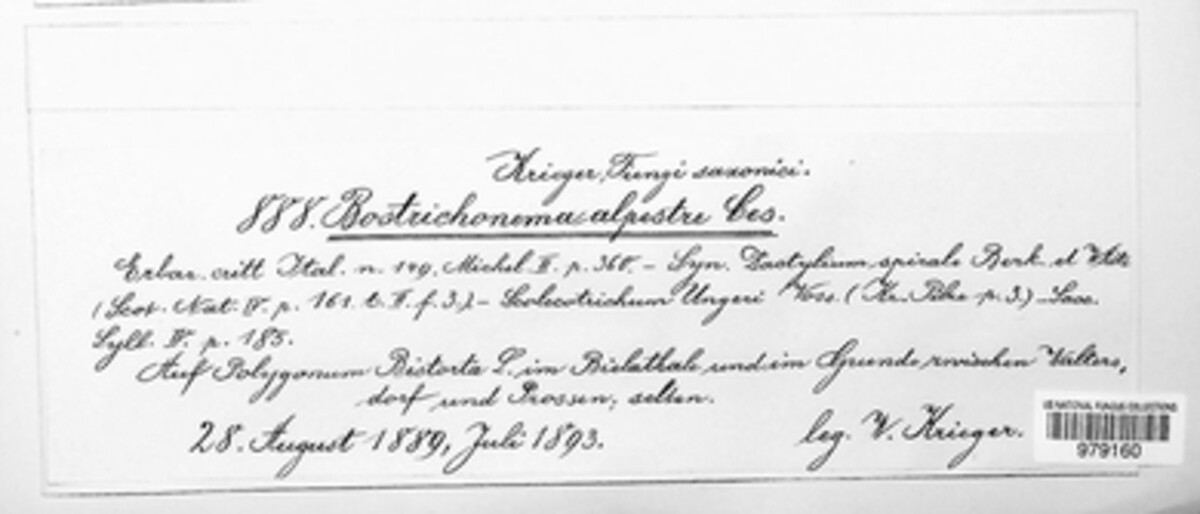 Krieger, Fungi saxonici.
888. Bostrichonema alpestre Ces.
Erbar. critt Ital. n. 149. Michel II. p. 368. – Syn. Dactylium spirale Berk. et White
(Scot. Nat. IV. p. 161. t. II. f. 3.) – Scolecotrichum Ungeri Voss. (Kr. Pilze p. 3.) – Sacc.
Syll. IV. p. 185.
Auf Polygonum Bistorta L. im Bielathale und im Grunde zwischen Walters,
dorf und Prossen, selten.
28. August 1889, Juli 1893.
leg. W. Krieger.
US NATIONAL FUNGUS COLLECTIONS
979160